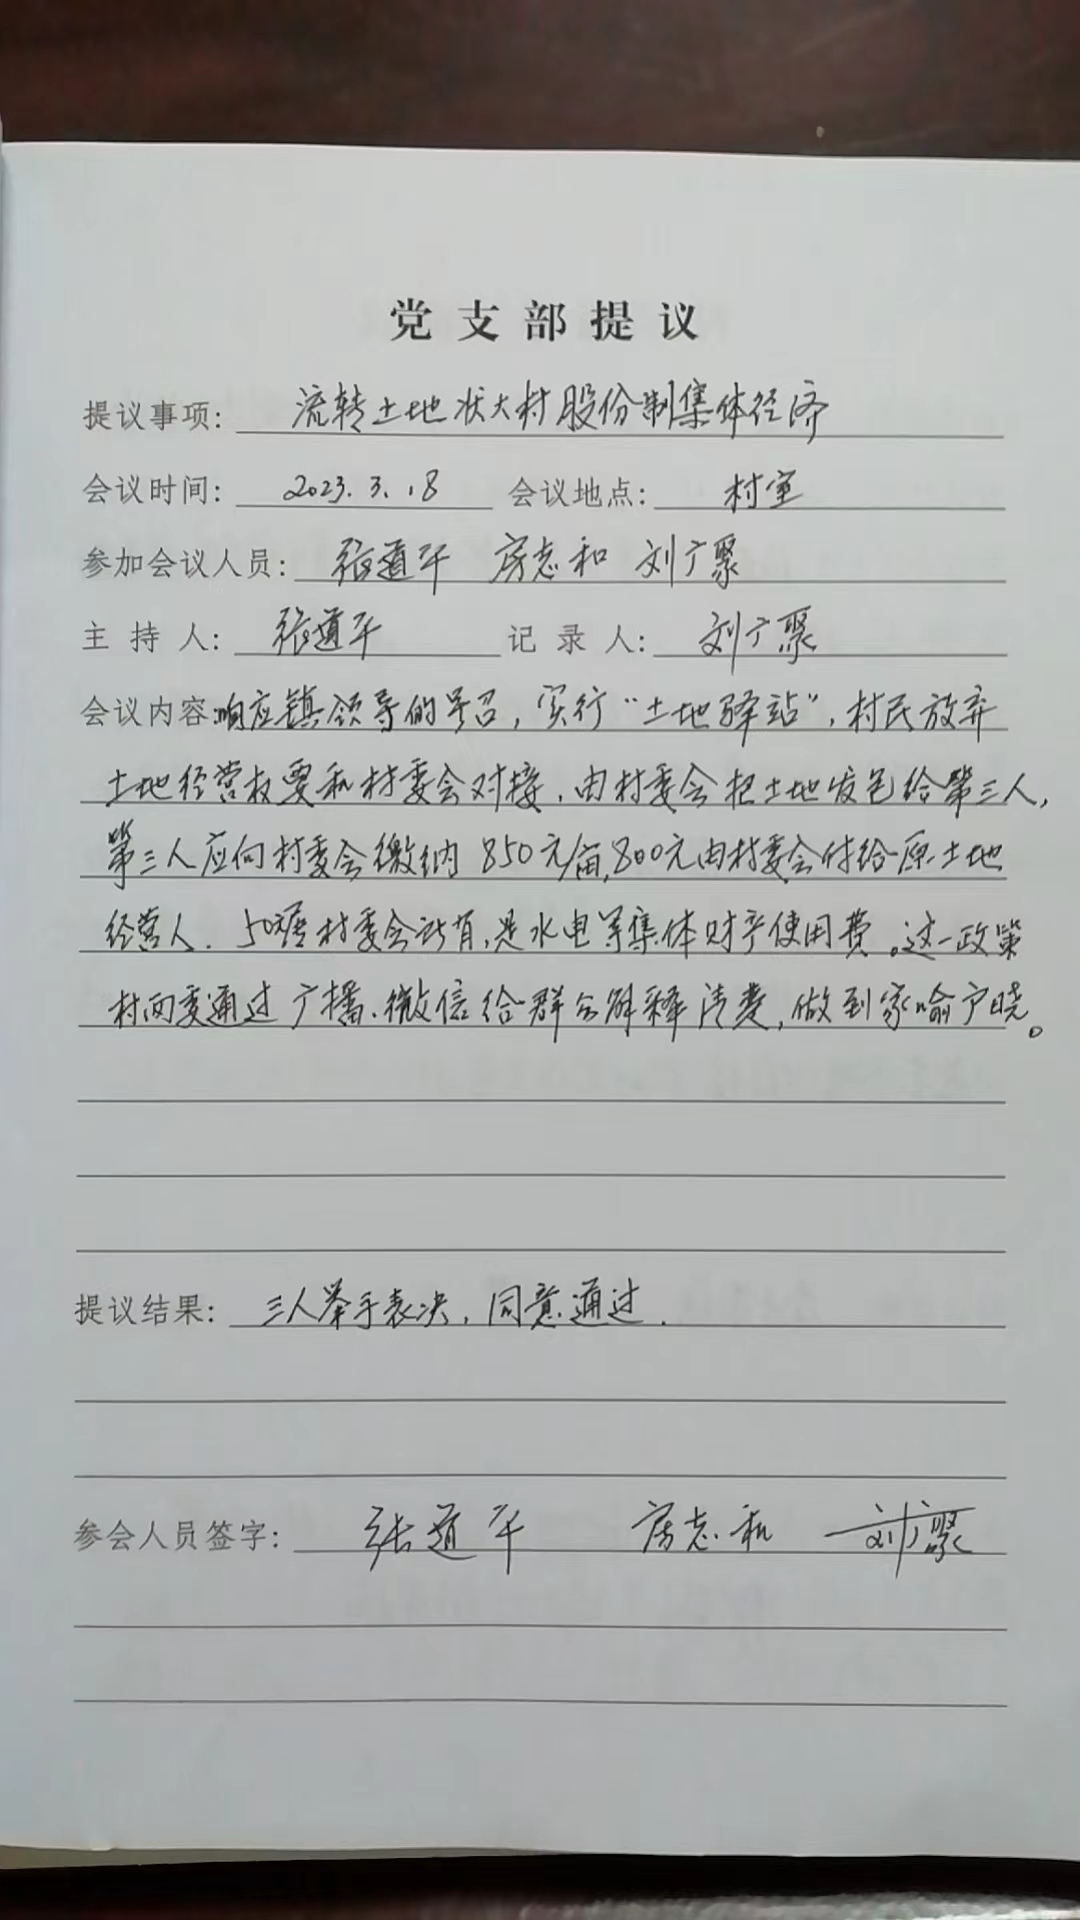 党支部提议
提议事项: 流转土地状大村股份制集体经济
会议时间: 2023.3.18 会议地点: 村室
参加会议人员: 张道平 房志和 刘广聚
主持人: 张道平 记录人: 刘广聚
会议内容:响应镇领导的号召，实行“土地驿站”，村民放弃
土地经营权要和村委会对接，由村委会把土地发包给第三人，
第三人应向村委会缴纳850元/亩，800元由村委会付给原土地
经营人，50元村委会所有，是水电等集体财产使用费。这一政策
村两委通过广播、微信给群众解释清楚，做到家喻户晓。
提议结果: 三人举手表决，同意通过.
参会人员签字: 张道平 房志和 刘广聚